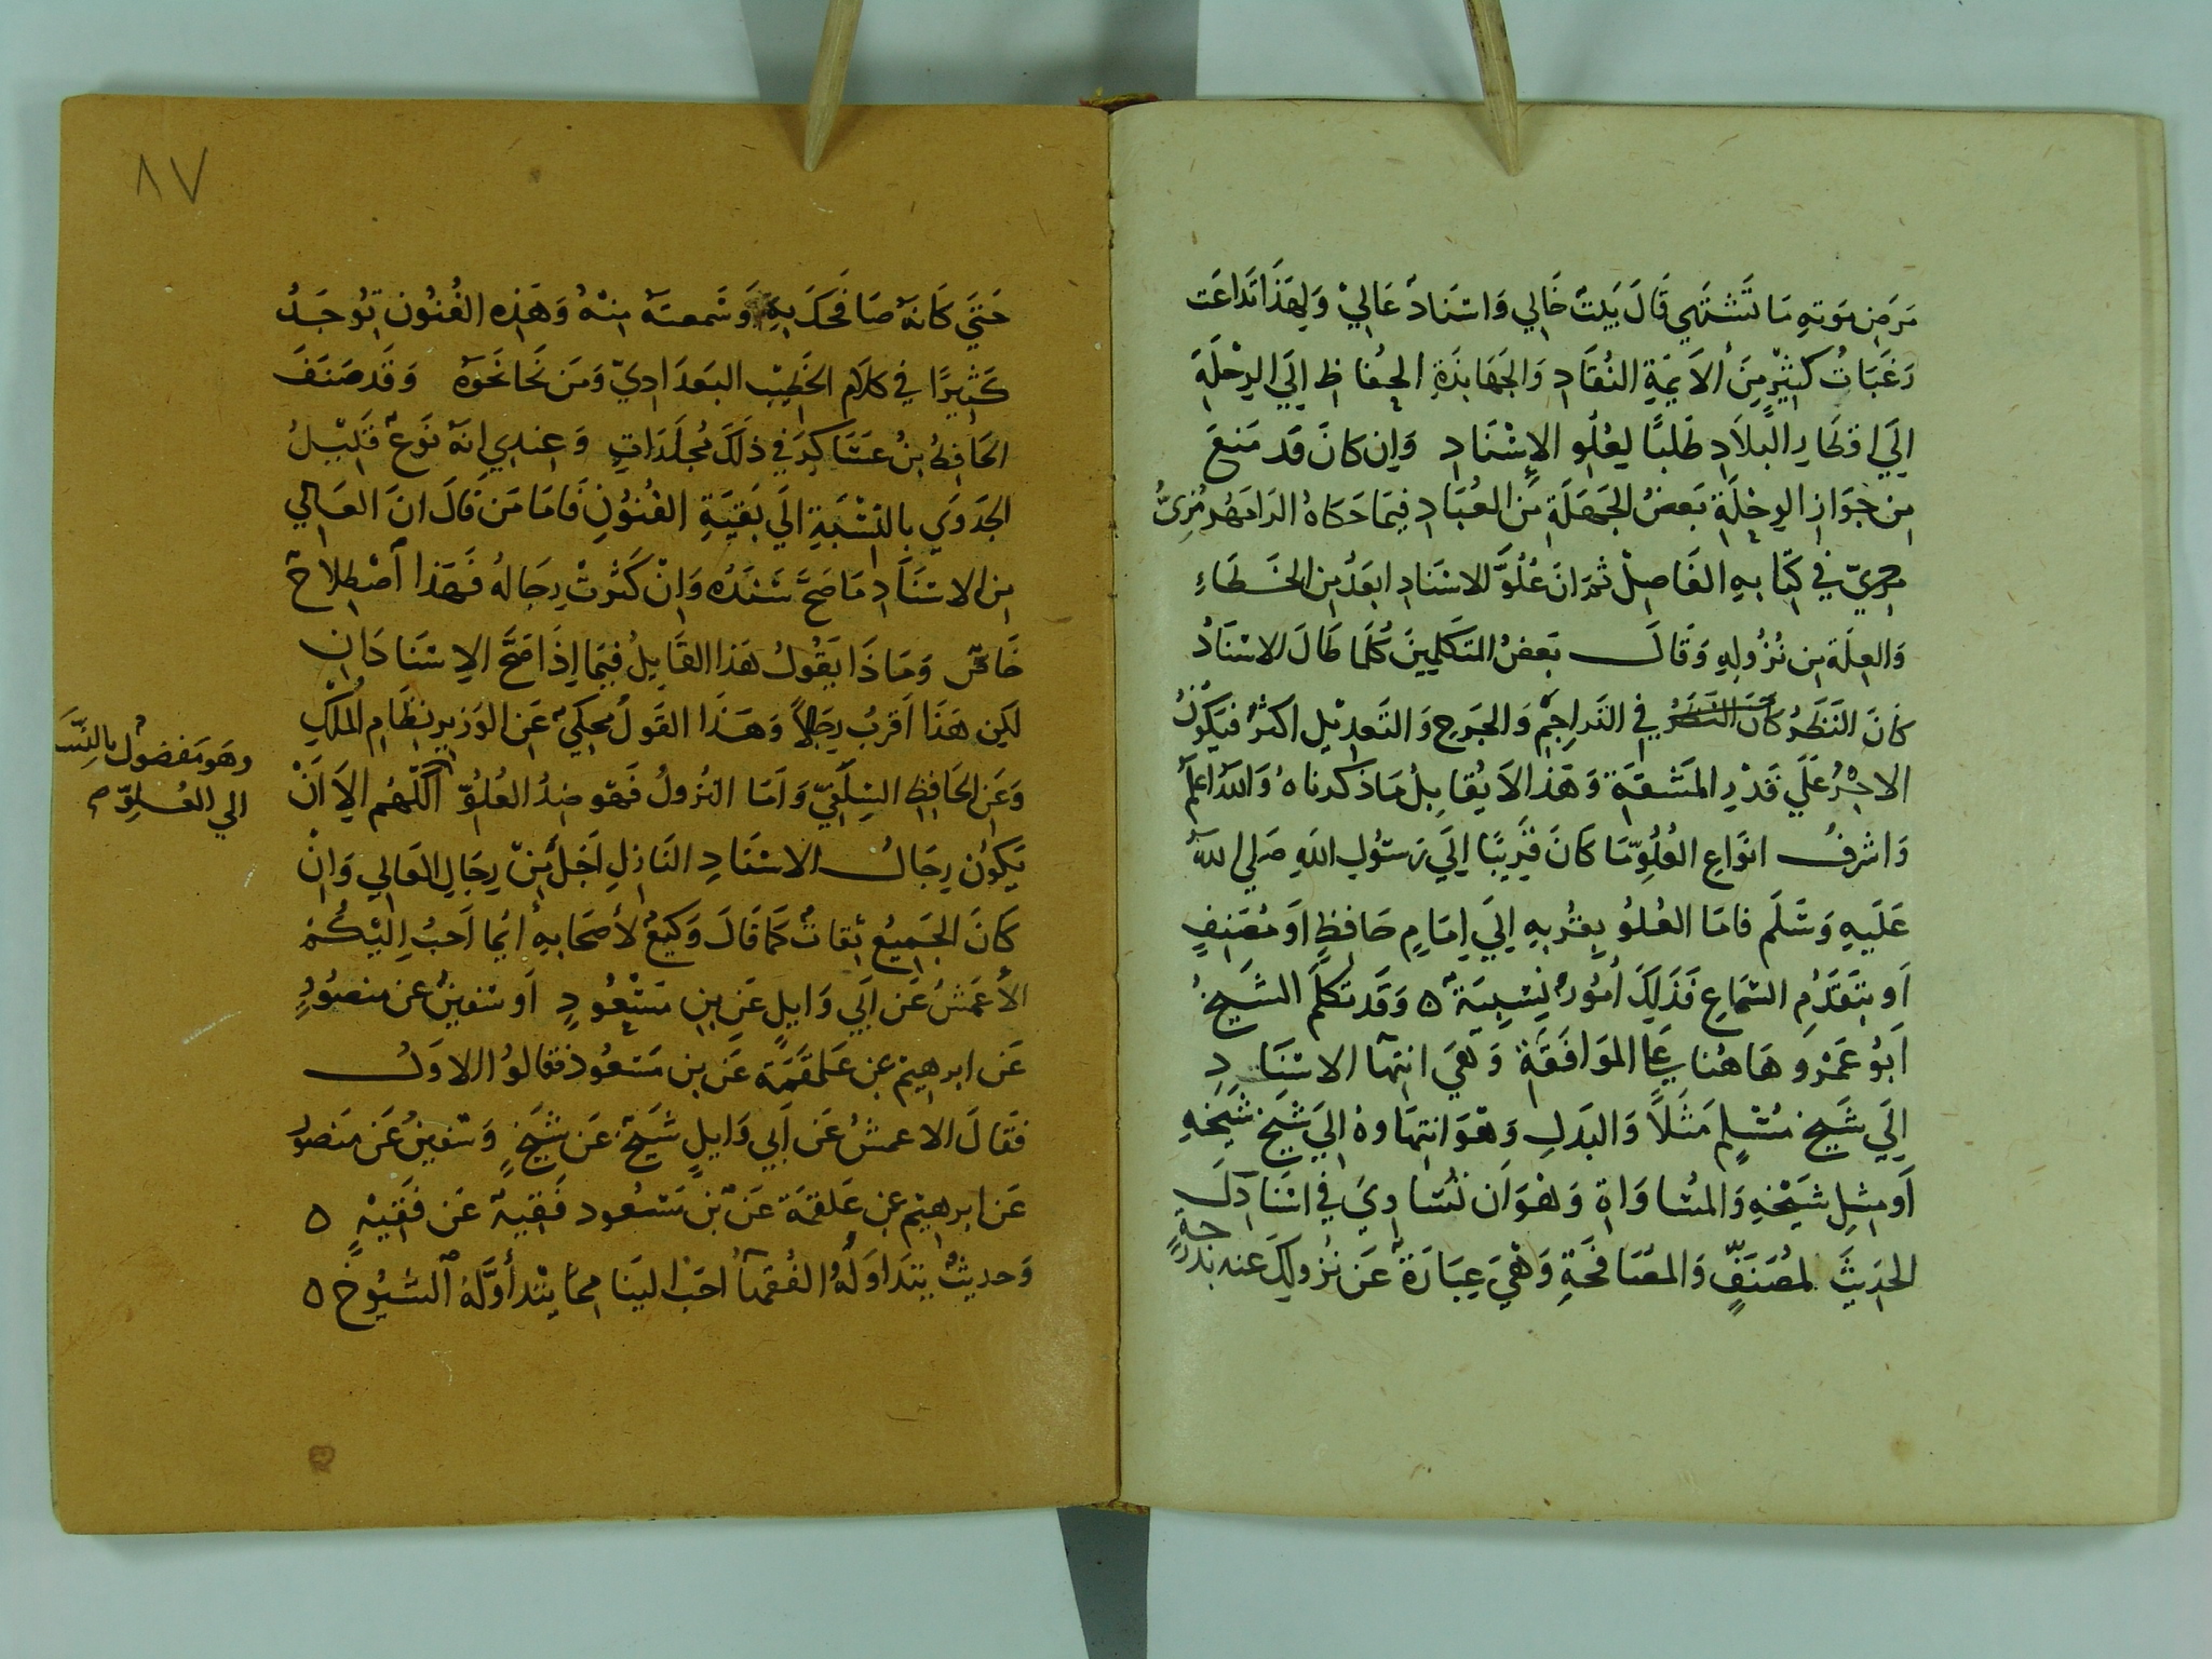 مَرَضِ مَوتِهِ مَا تَشتَهي قَالَ بَيتٌ خَالي وَاسنَادٌ عَاليْ وَلِهَذَا تَدَاعَت
رَغَبَاتُ كَثيْرٍ مِنَ الاَيمَّةِ النُقَّادِ وَالجَهَابِذَةِ الحُفاظِ اِلَي الرِحْلَةِ
اِلَي اقطَارِ البِلاَدِ طَلَبًا لِعُلُوِ الاِسْنَادِ وَاِن كَانَ قَد مَنَعَ
مِن جَوَازِ الرِحْلَةِ بَعضُ الجَهَلَةِ مِّنَ العُبَّادِ فِيمَا حَكاهُ الرَامَهُرمُزيُّ
مزيّ في كِتَابهِ الفَاصِلْ ثم اَنَ عُلُوَّ الاسْنَادِ ابعَدُ مِنَ الخَطَاءِ
وَالعِلَّةِ مِن نُزُولِهِ وَقَالَ بَعضُ المتَكَلِمينَ كُلَمَا طَالَ الاسْنَادُ
كَانَ النَظَرُ كَانَ النَظَرُ في التَراجِمْ وَالجَرحِ وَالتَعدِيْلِ اكثرُ فَيَكُونُ
الاجْرُ عَلَي قَدْرِ المَشَقَةِ وَهَذا لاَ يُقَابِلُ مَا ذَكَرناهُ وَاللهُ اَعلَم
وَاشرَفُ انوَاعِ العُلُوِّ مَا كَانَ قَرِيبًا اِلَي رَسُوْلِ اللهِ صَلي اللهُ
عَلَيهِ وَسَلَم فامَا العُلوُ بِقُربهِ اِلَي اِمَامٍ حَافِظٍ اَو مُصَنِفٍ
اَو بتَقَدُّمِ السَمَاعِ فَذَلِكَ اُمُورٌ نِسْبِيَةٌ ٥ وَقَد تَكلَّمَ الشَيخُ
اَبُو عَمْرو هَاهُنا عَلى المَوَافَقَةِ وَهيَ انتِهَا الاسْنَادِ
اِلَي شَيخِ مُسْلِمٍ مَثَلاً وَالبَدَلِ وَهْوَ انتِهَاوهُ اِلَي شَيخِ شَيخِهِ
اَو مِثلِ شَيْخهِ وَالمسُاوَاةِ وَهْوَ اَن تُسَاوِيَ في اسْنَادِكَ
الحَدِيثَ لمُصَنِفٍ وَالمصَافَحَةِ وَهْيَ عِبَارَةٌ عَن نُزُولِكَ عنه بدَرجَةٍ
٨٧
حَتيَ كَانهُ صَافَحَكَ بِهِ وَسَمعتَهُ مِنْهُ وَهَذِهِ الفُنُون تُوجَدُ
كَثِيرًا في كلاَم الخَطِيْب البَعدَاديّ وَمَن نَحَا نَحوَهُ وَقَد صَنَفَ
الحَافِظُ بنُ عسَاكِرَ في ذَلَكَ مُجلَدَاتٍ وَعِندي اِنهُ نَوعٌ قَليْلُ
الجَدوَي بالنِسْبَةِ اِلَي بَقِيَةِ الفنُوْنِ فَامَا مَن قَالَ انَ العَالي
مِن الاسْنَادِ مَا صَحَّ سَنَدُه وَانْ كَثُرتْ رِجَالهُ فَهَذا اصْطِلاَحٌ
خَاصٌ وَمَا ذَا يَقُولُ هَذا القَايِلُ فِيمَا اِذَا صَحَّ الاِسْنَادَان
لكِن هَذَا اقرَبُ رِجَالاً وَهَذَا القَولُ مُحكِيٌ عَن الوَزيرِ نِظَامِ المُلْكِ
وَعَن الحَافِظِ السِلَفيّ وَامَا النزُولُ فَهَو ضِدُ العُلُوِّ اللّهُم اِلاَ اَنْ
يَكُونَ رِجَالُ الاسْنَادِ النَازِلِ اَجَلَّ مِنّ رِجَالِ العَالي وَاِنْ
كَانَ الجَمِيعُ ثِقَاتٌ كمَا قَالَ وَكيعٌ لأصحَابهِ اَيُما اَحَبُ اِليْكُمْ
الأعمَشُ عَن اَبي وَايلٍ عَن بن مَسْعُودٍ اَو سْفينُ عن منصوُرٍ
عَن ابرهيْم عَن عَلقَمَةَ عَن بن مَسعُود فقَالوُا الاوَلُ
فَقَالَ الاعمشُ عَن اَبي وَايلٍ شَيخٌ عَن شَيخٍ وَسْفينُ عَن مَنصور
عَن ابرهيْم عَن عَلقمَة عَن بن مَسْعُود فَقِيهٌ عَن فَقِيْهٍ ٥
وَحديثٌ يتدَاوَلَهُ الفُقهَآ احَبُ اليَنا ممَا يتْدأوَلَهُ الشيُوخ ٥
وهَو مَفضوُلٌ بالنِسَبَةِ
الي العُلوِّ م